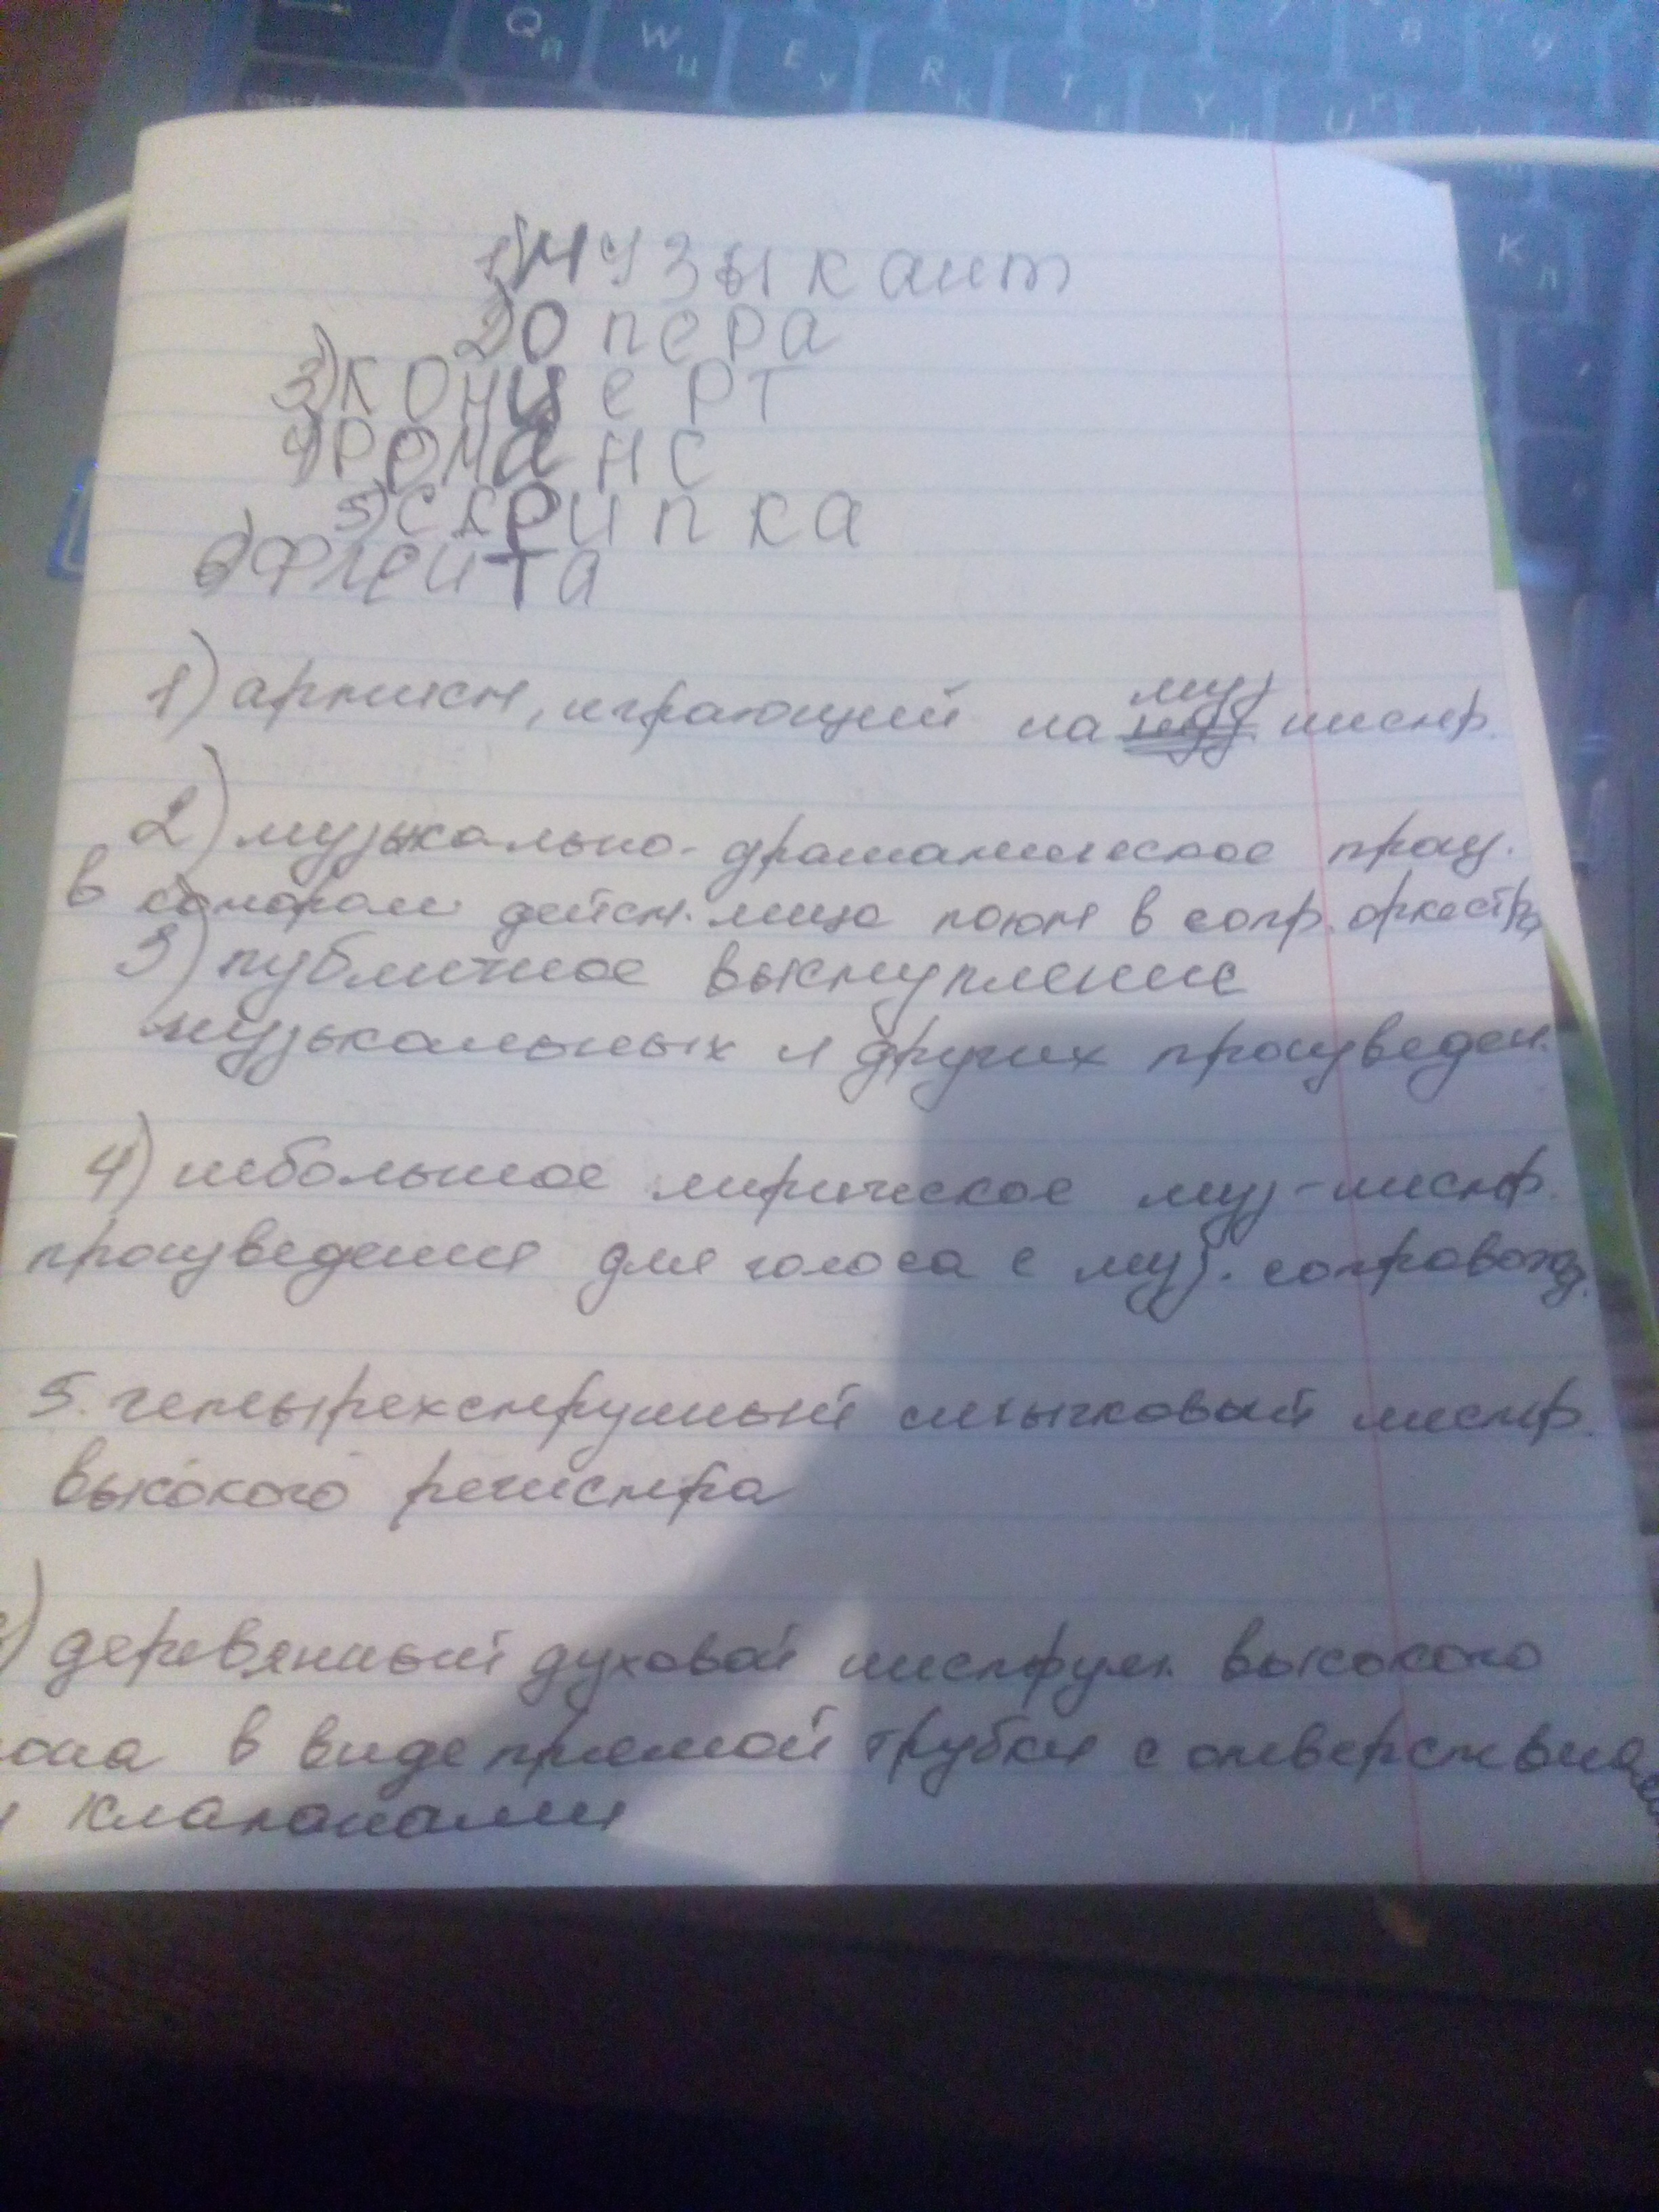 1) музыкант
2) опера
3) концерт
4) романс
5) скрипка
6) флейта
1) артист, играющий на муз инстр.
2) музыкально-драматическое произ.
в котором дейст. лица поют в сопр. оркестра
3) публичное выступление
музыкальных и других произведен.
4) небольшое лирическое муз-инстр.
произведение для голоса с муз. сопровожд.
5. четырехструнный смычковый инстр.
высокого регистра
) деревянный духовой инструм. высокого
тона в виде прямой трубки с отверстиями
и клапанами
Q Й W Ц E У R К T Е Y Н U Г 7 8 9
K Л